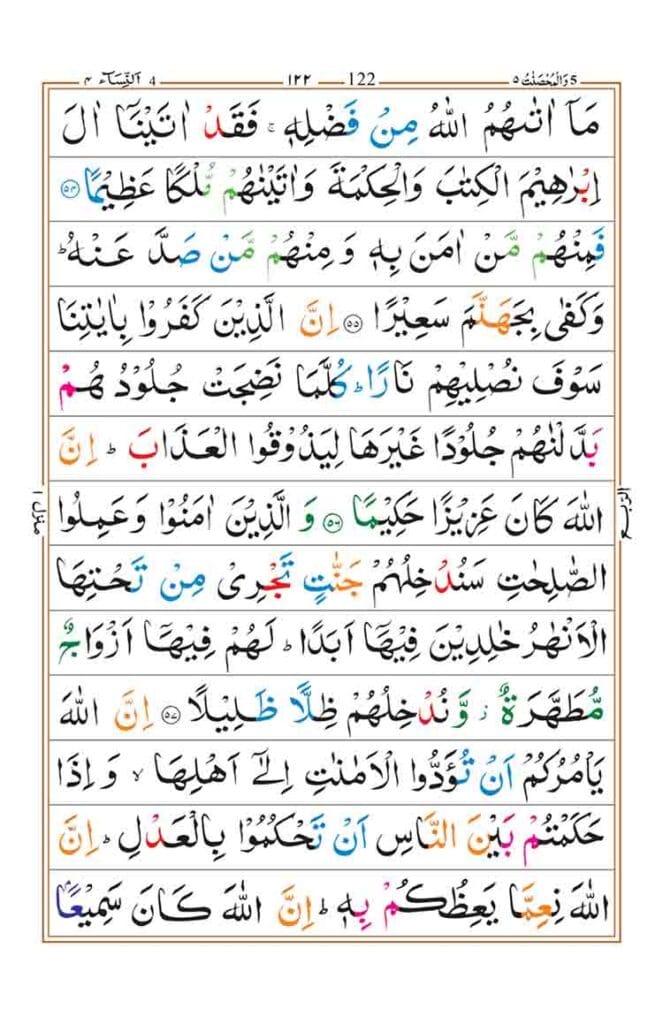 5 وَالْمُحْصَنٰتُ ٥ 122 ١٢٢ 4 اَلنِّسَآء ٤
مَاۤ اٰتٰىهُمُ اللّٰهُ مِنْ فَضْلِهٖ ۚ فَقَدْ اٰتَيْنَاۤ اٰلَ
اِبْرٰهِيْمَ الْكِتٰبَ وَالْحِكْمَةَ وَاٰتَيْنٰهُمْ مُّلْكًا عَظِيْمًا ٥٤
فَمِنْهُمْ مَّنْ اٰمَنَ بِهٖ وَ مِنْهُمْ مَّنْ صَدَّ عَنْهُ ؕ
وَكَفٰى بِجَهَنَّمَ سَعِيْرًا ٥٥ اِنَّ الَّذِيْنَ كَفَرُوْا بِاٰيٰتِنَا
سَوْفَ نُصْلِيْهِمْ نَارًا ؕ كُلَّمَا نَضِجَتْ جُلُوْدُ هُمْ
بَدَّلْنٰهُمْ جُلُوْدًا غَيْرَهَا لِيَذُوْقُوا الْعَذَابَ ؕ اِنَّ
اللّٰهَ كَانَ عَزِيْزًا حَكِيْمًا ٥٦ وَ الَّذِيْنَ اٰمَنُوْا وَعَمِلُوا
الصّٰلِحٰتِ سَنُدْخِلُهُمْ جَنّٰتٍ تَجْرِىْ مِنْ تَحْتِهَا
الْاَنْهٰرُ خٰلِدِيْنَ فِيْهَاۤ اَبَدًا ؕ لَهُمْ فِيْهَاۤ اَزْوَاجٌ
مُّطَهَّرَةٌ ؗ وَّنُدْخِلُهُمْ ظِلًّا ظَلِيْلًا ٥٧ اِنَّ اللّٰهَ
يَاْمُرُكُمْ اَنْ تُؤَدُّوا الْاَمٰنٰتِ اِلٰٓى اَهْلِهَا ۙ وَ اِذَا
حَكَمْتُمْ بَيْنَ النَّاسِ اَنْ تَحْكُمُوْا بِالْعَدْلِ ؕ اِنَّ
اللّٰهَ نِعِمَّا يَعِظُكُمْ بِهٖ ؕ اِنَّ اللّٰهَ كَانَ سَمِيْعًۢا
الرُّبع
منزل ١